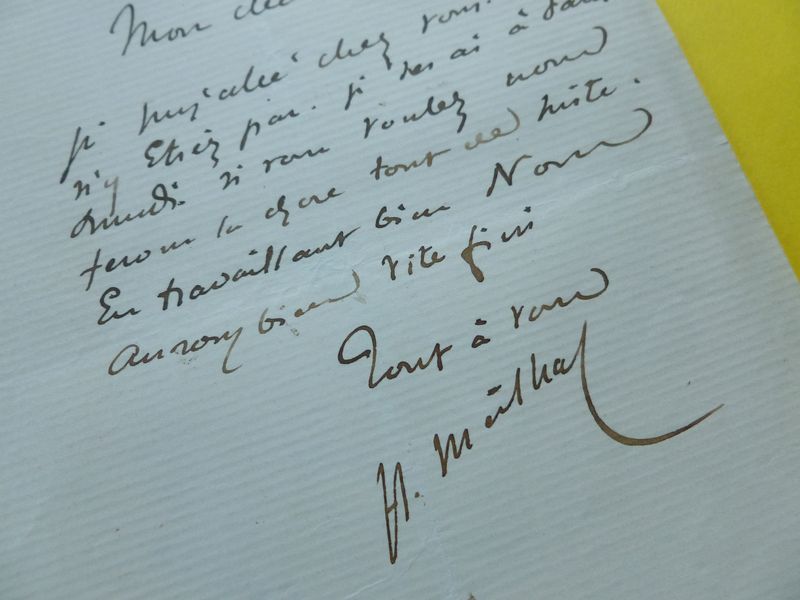 Mon
je suis allé chez vous.
n'y Etiez pas. je serai à
Lundi. si vous voulez nous
ferons la chose tout de suite.
En travaillant bien Nous
aurons bien vite fini
Tout à vous
H. Meilhac